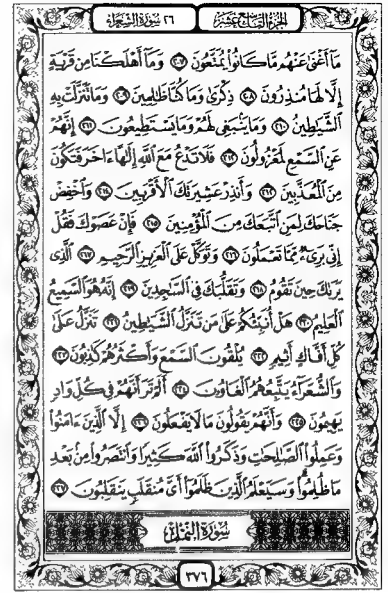 الجزء التاسع عشر ٢٦ سورة الشعراء
مَآ أَغْنَىٰ عَنْهُم مَّا كَانُوا۟ يُمَتَّعُونَ ٢٠٧ وَمَآ أَهْلَكْنَا مِن قَرْيَةٍ
إِلَّا لَهَا مُنذِرُونَ ٢٠٨ ذِكْرَىٰ وَمَا كُنَّا ظَٰلِمِينَ ٢٠٩ وَمَا تَنَزَّلَتْ بِهِ
ٱلشَّيَٰطِينُ ٢١٠ وَمَا يَنۢبَغِى لَهُمْ وَمَا يَسْتَطِيعُونَ ٢١١ إِنَّهُمْ
عَنِ ٱلسَّمْعِ لَمَعْزُولُونَ ٢١٢ فَلَا تَدْعُ مَعَ ٱللَّهِ إِلَٰهًا ءَاخَرَ فَتَكُونَ
مِنَ ٱلْمُعَذَّبِينَ ٢١٣ وَأَنذِرْ عَشِيرَتَكَ ٱلْأَقْرَبِينَ ٢١٤ وَٱخْفِضْ
جَنَاحَكَ لِمَنِ ٱتَّبَعَكَ مِنَ ٱلْمُؤْمِنِينَ ٢١٥ فَإِنْ عَصَوْكَ فَقُلْ
إِنِّى بَرِىٓءٌ مِّمَّا تَعْمَلُونَ ٢١٦ وَتَوَكَّلْ عَلَى ٱلْعَزِيزِ ٱلرَّحِيمِ ٢١٧ ٱلَّذِى
يَرَىٰكَ حِينَ تَقُومُ ٢١٨ وَتَقَلُّبَكَ فِى ٱلسَّٰجِدِينَ ٢١٩ إِنَّهُۥ هُوَ ٱلسَّمِيعُ
ٱلْعَلِيمُ ٢٢٠ هَلْ أُنَبِّئُكُمْ عَلَىٰ مَن تَنَزَّلُ ٱلشَّيَٰطِينُ ٢٢١ تَنَزَّلُ عَلَىٰ
كُلِّ أَفَّاكٍ أَثِيمٍ ٢٢٢ يُلْقُونَ ٱلسَّمْعَ وَأَكْثَرُهُمْ كَٰذِبُونَ ٢٢٣
وَٱلشُّعَرَآءُ يَتَّبِعُهُمُ ٱلْغَاوُۥنَ ٢٢٤ أَلَمْ تَرَ أَنَّهُمْ فِى كُلِّ وَادٍ
يَهِيمُونَ ٢٢٥ وَأَنَّهُمْ يَقُولُونَ مَا لَا يَفْعَلُونَ ٢٢٦ إِلَّا ٱلَّذِينَ ءَامَنُوا۟
وَعَمِلُوا۟ ٱلصَّٰلِحَٰتِ وَذَكَرُوا۟ ٱللَّهَ كَثِيرًا وَٱنتَصَرُوا۟ مِنۢ بَعْدِ
مَا ظُلِمُوا۟ وَسَيَعْلَمُ ٱلَّذِينَ ظَلَمُوٓا۟ أَىَّ مُنقَلَبٍ يَنقَلِبُونَ ٢٢٧
سورة النمل
٣٧٦